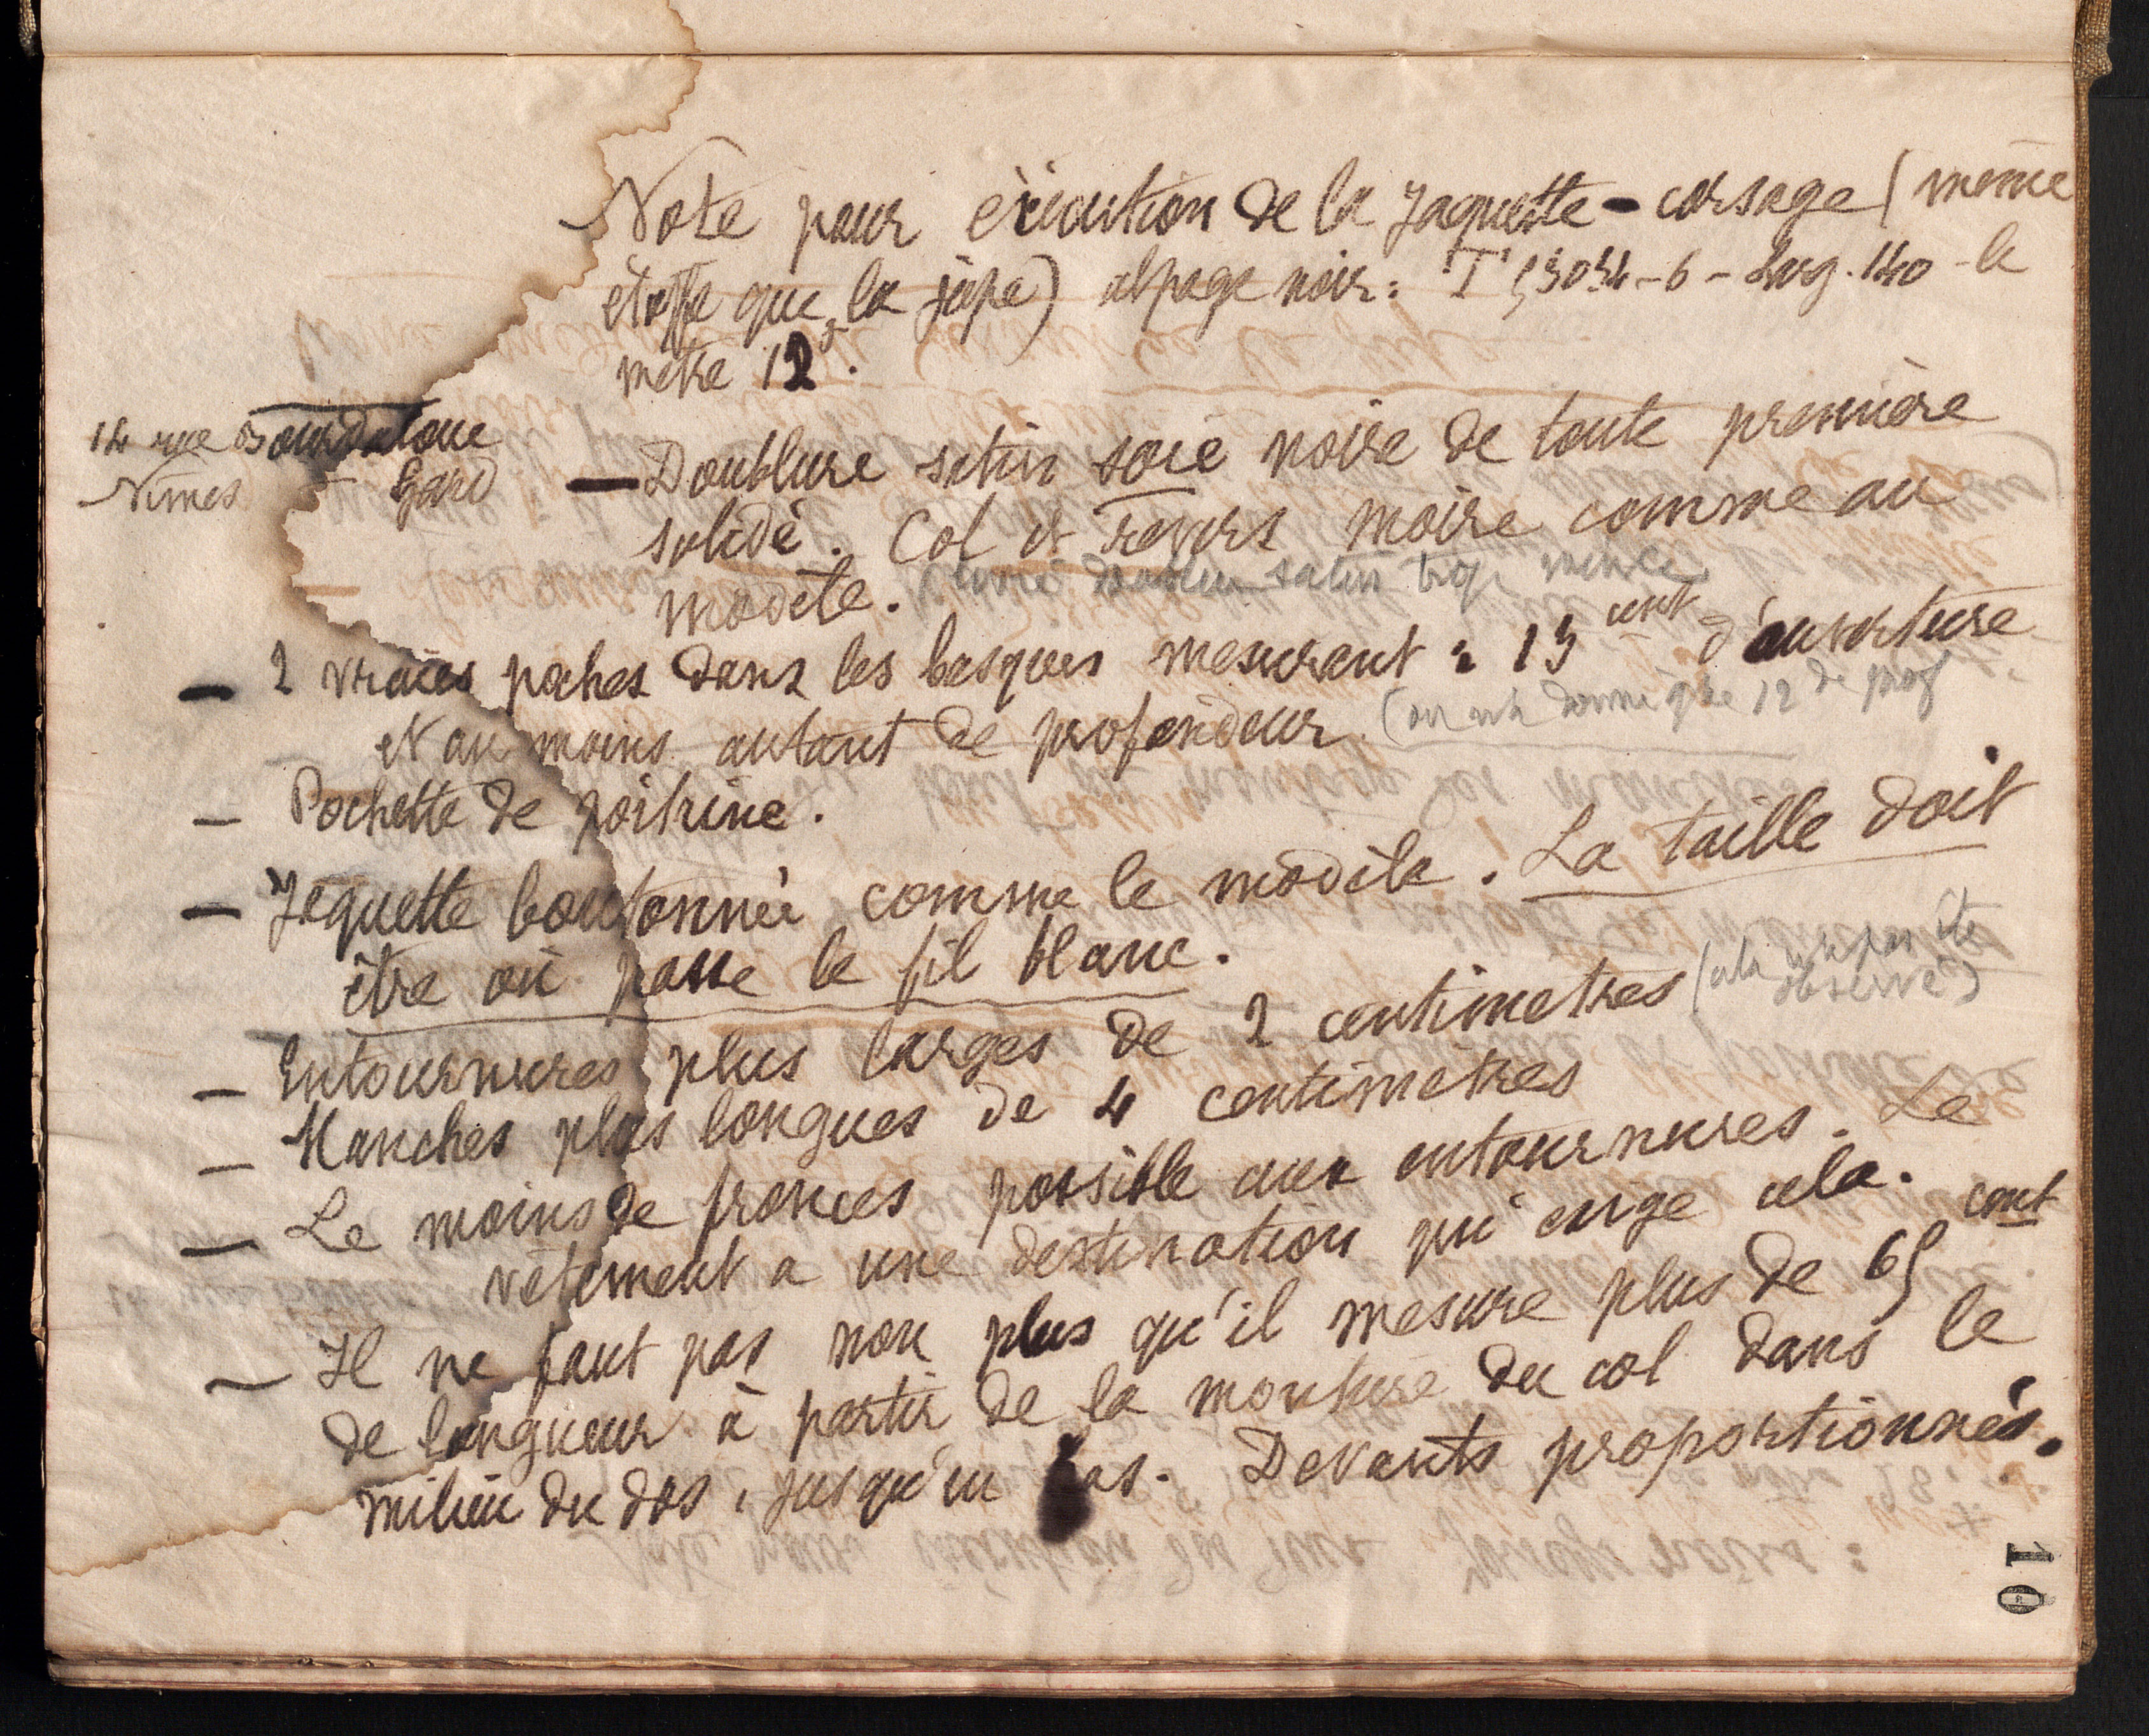 Note pour exécution de la Jaquette - corsage (même
étoffe que la jupe) alpaga noir: - 6 - Larg. 140 - le
mètre 12.
14 rue Bourdaloue
Nîmes - Gard
— Doublure satin soie noire de toute première
solide. Col et revers moire comme au
modèle. satin trop mince
— 2 vraies poches dans les basques mesurant : 15 cent d'ouverture
et au moins autant de profondeur. (on n'a donné que 12 de prof
— Pochette de poitrine.
— Jaquette boutonnée comme le modèle. La taille doit
être où passe le fil blanc.
— Entournures plus larges de 2 centimetres (cela n'a pas été
observé)
— Manches plus longues de 4 centimètres
— Le moins de fronces possible aux entournures. Le
vêtement a une destination qui exige cela.
— Il ne faut pas non plus qu'il mesure plus de 65 cent
de longueur à partir de la monture du col dans le
milieu du dos, jusqu'au bas. Devants proportionnés.
10